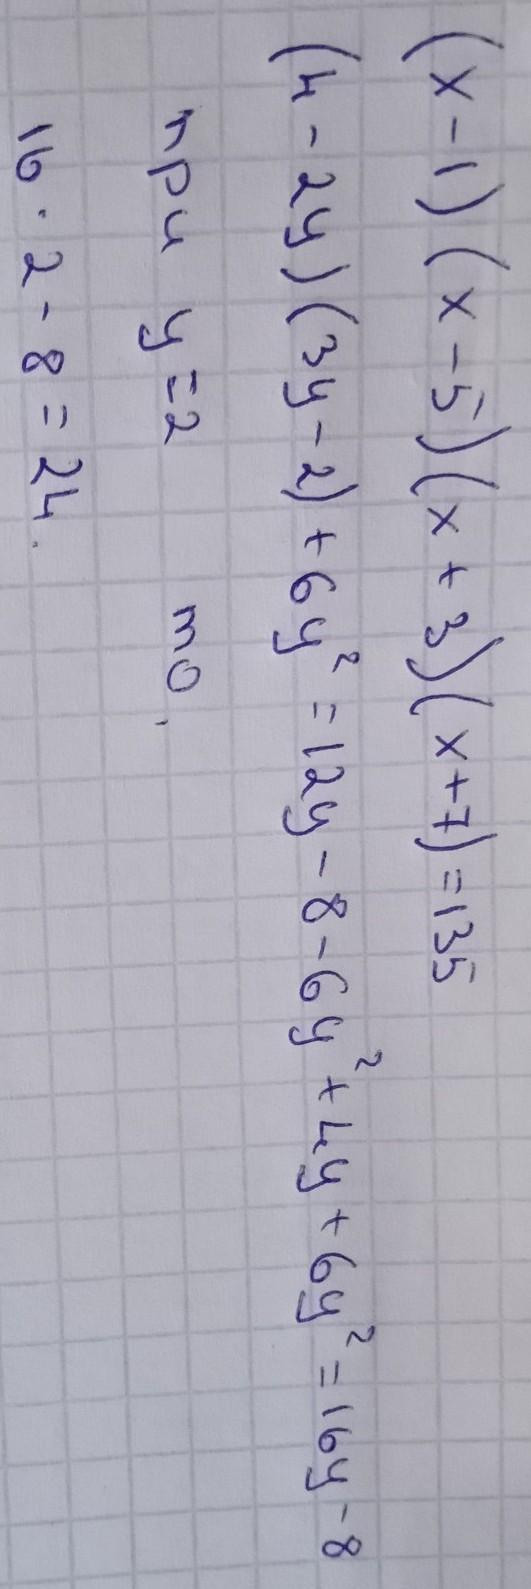 (x-1)(x-5)(x+3)(x+7)=135
(4-2y)(3y-2)+6y²=12y-8-6y²+4y+6y²=16y-8
при y=2 то,
16·2-8=24.